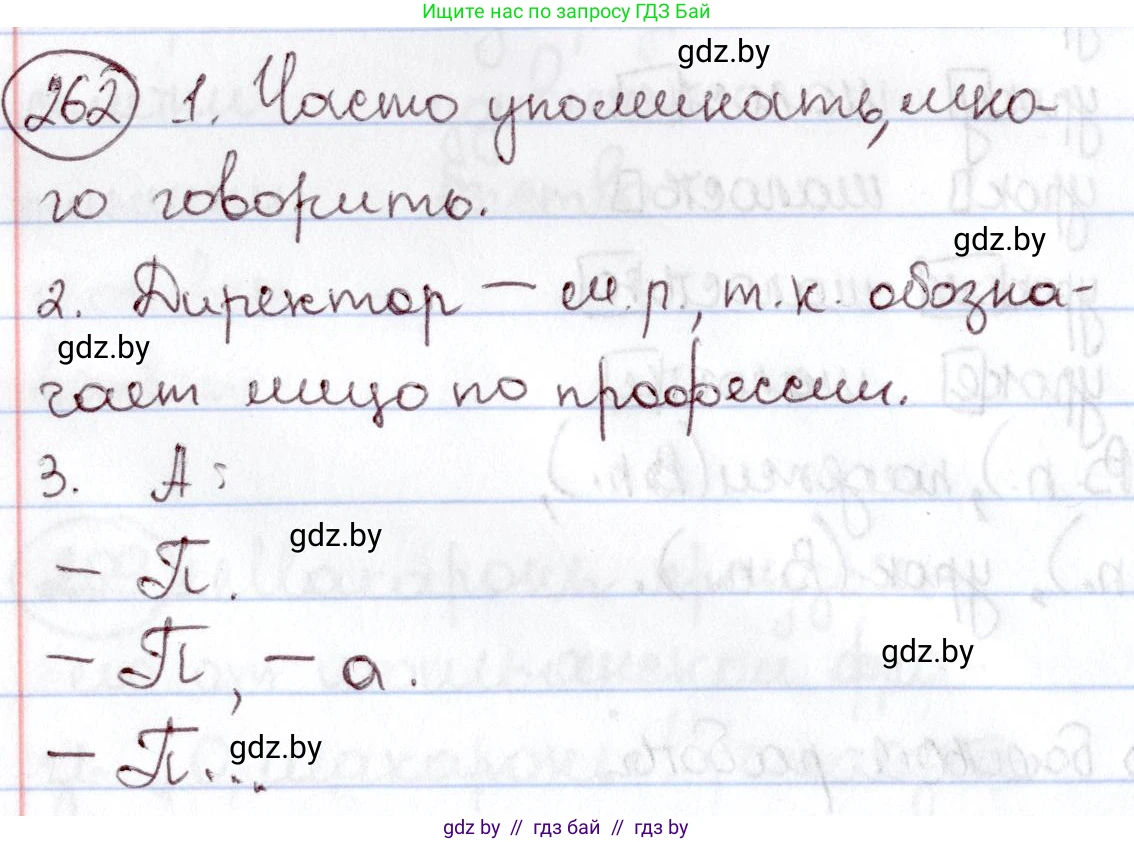 Ищите нас по запросу ГДЗ Бай
gdz.by
262 1. Часто упоминать, мно-
го говорить.
gdz.by
2. Директор — м.р., т.к. обозна-
gdz.by
чает лицо по профессии.
3. А:
gdz.by
— П.
— П, — а.
gdz.by
— П...
gdz.by
gdz by // гдз бай // gdz by